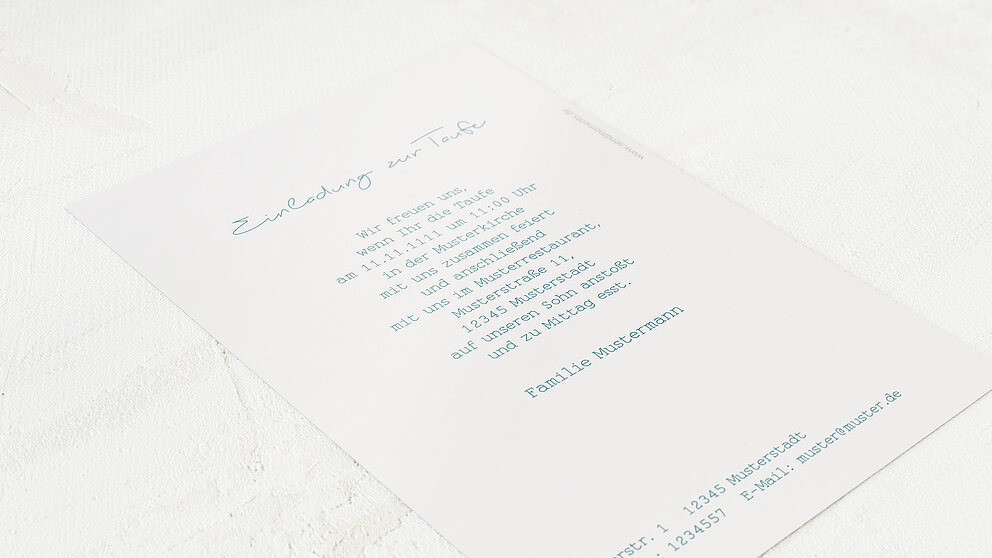 Einladung zur Taufe
Wir freuen uns,
wenn Ihr die Taufe
am 11.11.1111 um 11:00 Uhr
in der Musterkirche
mit uns zusammen feiert
und anschließend
mit uns im Musterrestaurant,
Musterstraße 11,
12345 Musterstadt
auf unseren Sohn anstoßt
und zu Mittag esst.
Familie Mustermann
erstr. 1 12345 Musterstadt
: 1234557 E-Mail: muster@muster.de